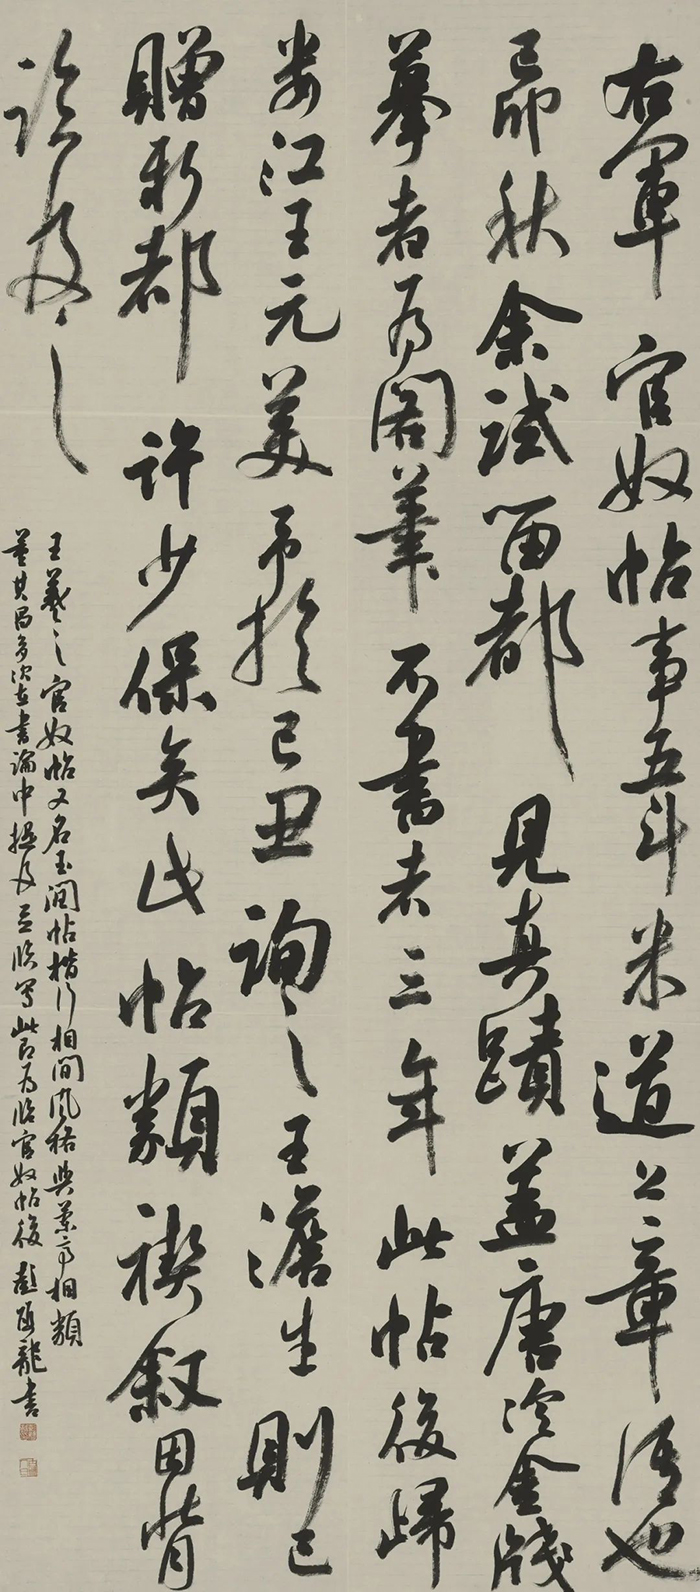 右軍官奴帖事五斗米道上章語也
己卯秋余試留都見真蹟蓋唐冷金牋
摹者為閣筆不書者三年此帖後歸
婁江王元美予於己丑詢之王澹生則已
贈新都許少保矣此帖類禊叙因背
臨及之
王羲之官奴帖又名玉潤帖楷行相間風格與蘭亭相類
董其昌多次在書論中提及並臨寫此即為臨官奴帖後 彭龍書